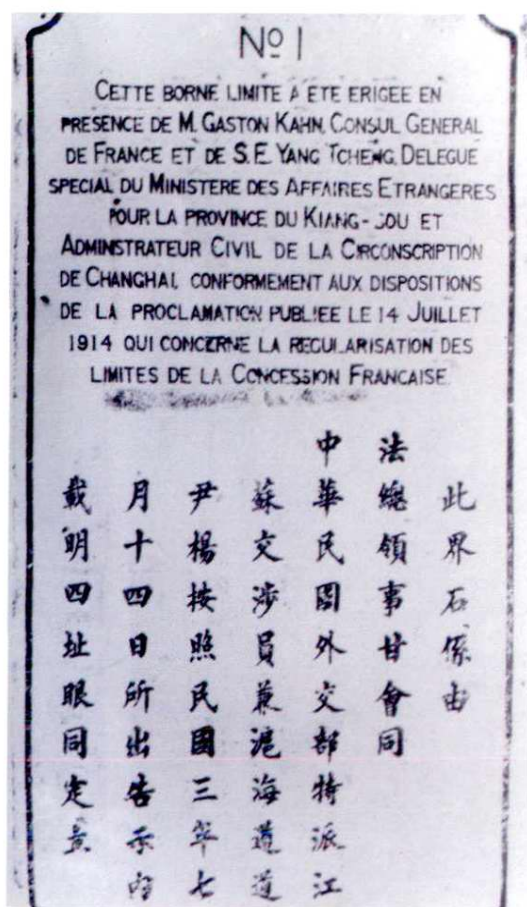 Nº 1
CETTE BORNE LIMITE A ETE ERIGEE EN
PRESENCE DE M. GASTON KAHN, CONSUL GENERAL
DE FRANCE ET DE S.E. YANG TCHENG, DELEGUE
SPECIAL DU MINISTERE DES AFFAIRES ETRANGERES
POUR LA PROVINCE DU KIANG-SOU ET
ADMINSTRATEUR CIVIL DE LA CIRCONSCRIPTION
DE CHANGHAI, CONFORMEMENT AUX DISPOSITIONS
DE LA PROCLAMATION PUBLIEE LE 14 JUILLET
1914 QUI CONCERNE LA REGULARISATION DES
LIMITES DE LA CONCESSION FRANCAISE
此界石係由
法總領事甘會同
中華民國外交部特派江
蘇交涉員兼滬海道道
尹楊按照民國三年七
月十四日所出告示內
載明四址眼同定立